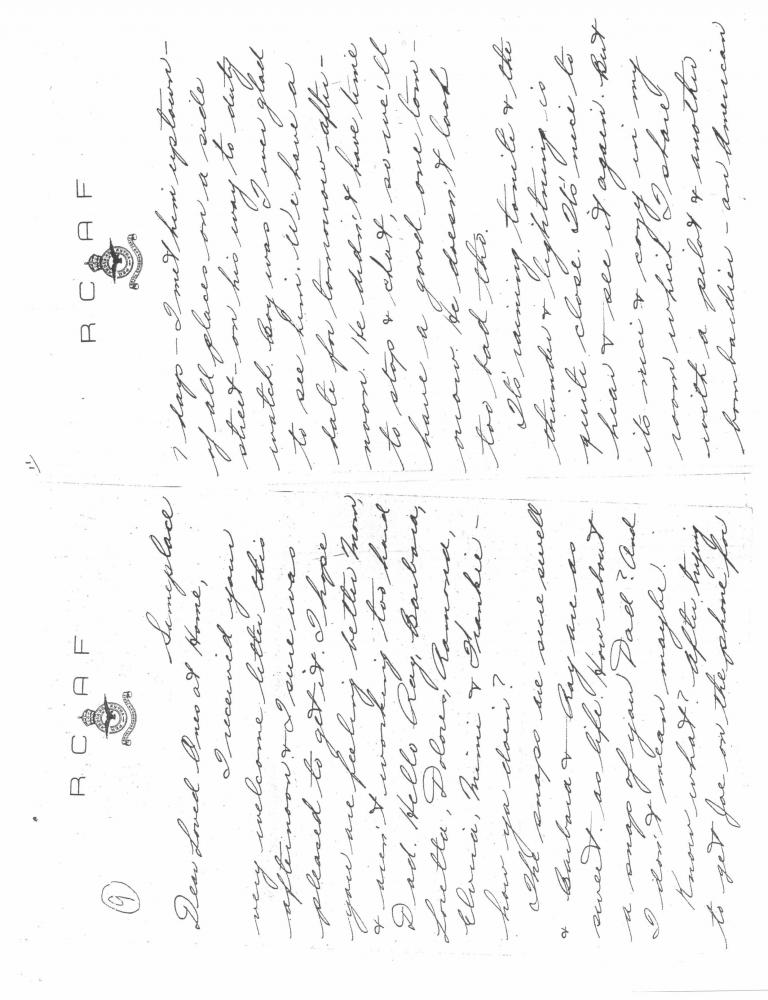 (9)
R C A F
Someplace
Dear Loved Ones at Home,
I received your
very welcome letter this
afternoon & I sure was
pleased to get it. I hope
you are feeling better Mom,
& aren't working too hard
Dad. Hello Ray, Barbara,
Loretta, Dolores, Ramona,
Elvina, Mimi & Frankie -
how ya doin?
The snaps are sure swell
& Barbara & Ray are as
sweet as life. How about
a snap of you Dad? And
I don't mean maybe.
Know what? After trying
to get Joe on the phone for
R C A F
7 days - I met him uptown -
of all places on a side
street - on his way to duty
watch. Boy was I ever glad
to see him. We have a
date for tomorrow after-
noon. He didn't have time
to stop & chat, so we'll
have a good one tom-
orrow. He doesn't look
too bad tho.
It's raining tonite & the
thunder & lightning is
quite close. It's nice to
hear & see it again. But
its nice & cozy in my
room which I share
with a pilot & another
bombardier - an American